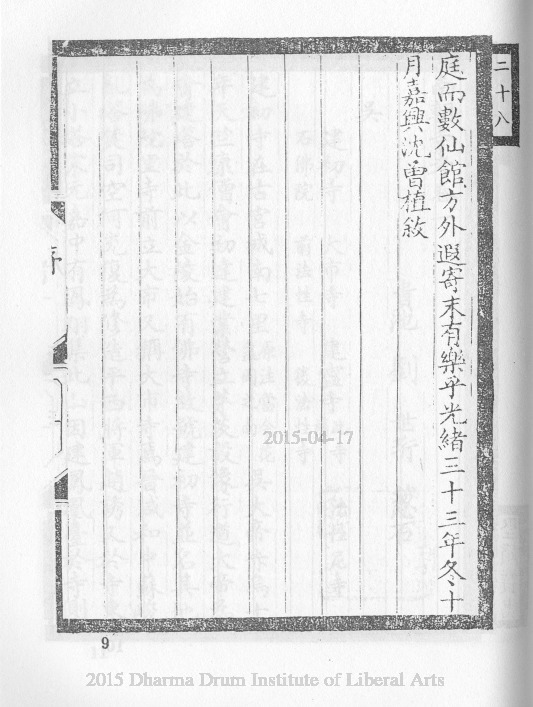 二十八
庭而數仙館方外遐寄末有樂乎光緒三十三年冬十
月嘉興沈曾植敘
序
十
2015-04-17
9
2015 Dharma Drum Institute of Liberal Arts